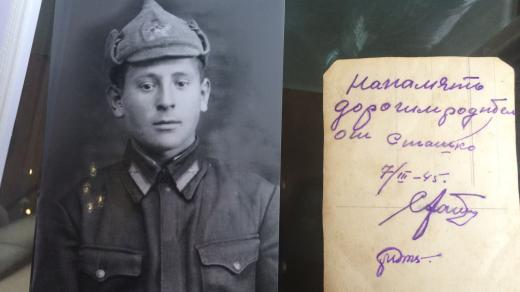 На память
дорогим родител
от Сташко
7/III-45.